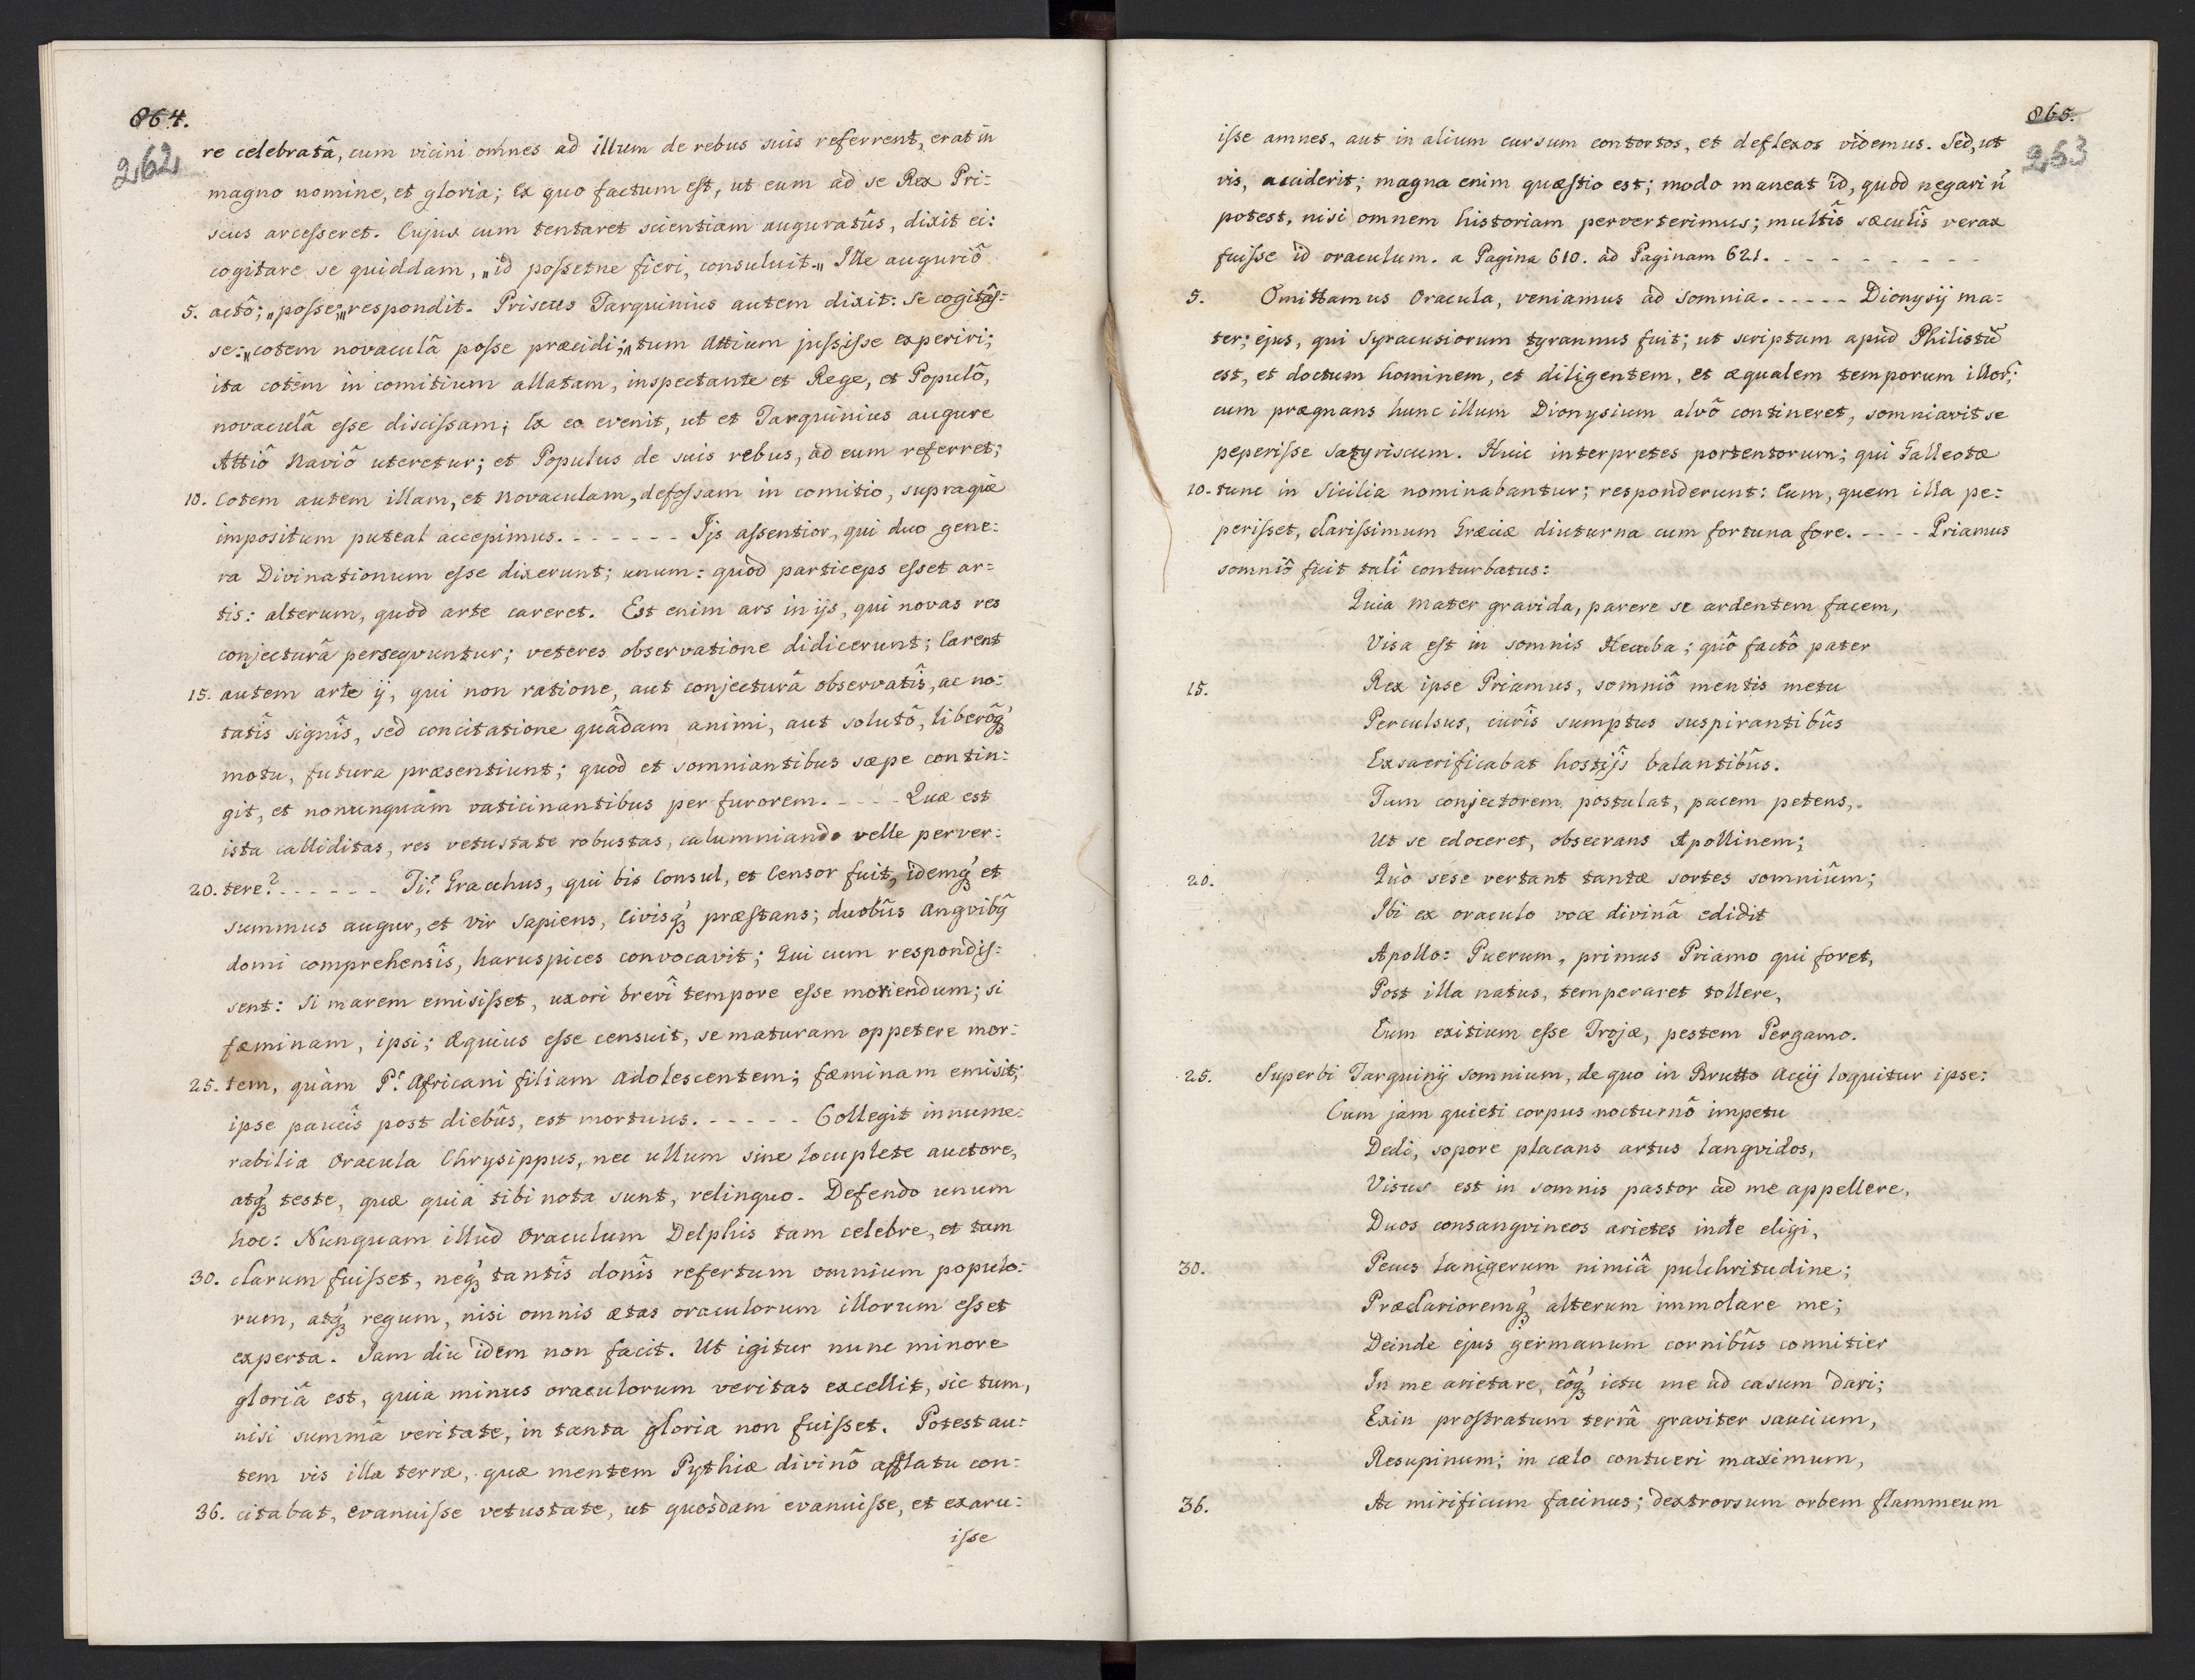 864.
262
re celebratâ, cum vicini omnes ad illum de rebus suis referrent, erat in
magno nomine, et gloria; Ex quo factum est, ut eum ad se Rex Pri:
scus arcesseret. Cujus cum tentaret scientiam auguratûs, dixit ei:
cogitare se quiddam, „id possetne fieri, consuluit.„ Ille auguriô
5. actô; „posse;„ respondit. Priscus Tarquinius autem dixit: se cogitâs:
se: „cotem novaculâ posse præcidi;„ tum Attium jussisse experiri;
ita cotem in comitium allatam, inspectante et Rege, et Populô,
novaculâ esse discissam; Ex eo evenit, ut et Tarquinius augure
Attiô Naviô uteretur; et Populus de suis rebus, ad eum referret;
10. Cotem autem illam, et Novaculam, defossam in comitio, supraquè
impositum puteal accepimus. - - - - - - Ijs assentior, qui duo gene:
ra Divinationum esse dixerunt; unum: quòd particeps esset ar:
tis: alterum, quòd arte careret. Est enim ars in ijs, qui novas res
conjecturâ persequuntur; veteres observatione didicerunt; Carent
15. autem arte ij, qui non ratione, aut conjecturâ observatîs, ac no:
tatîs signîs, sed concitatione quâdam animi, aut solutô, liberôq́ꝫ
motu, futura præsentiunt; quòd et somniantibus sæpe contin:
git, et nonunquàm vaticinantibus per furorem. - - - - Quæ est
ista calliditas, res vetustate robustas, calumniando velle perver:
20. tere? - - - - - - Ti: Gracchus, qui bis Consul, et Censor fuit, idemq́ꝫ et
summus augur, et vir sapiens, Civisq́ꝫ præstans; duobûs Angvibq̃
domi comprehensîs, haruspices convocavit; Qui cum respondis:
sent: Si marem emisisset, uxori brevî tempore esse moriendum; si
fæminam, ipsi; Æquius esse censuit, se maturam oppetere mor:
25. tem, quàm P: Africani filiam adolescentem; fæminam emisit;
ipse paucîs post diebûs, est mortuus. - - - - - Collegit innume:
rabilia Oracula Chrysippus, nec ullum sine locuplete auctore,
atq́ꝫ teste, quæ quia tibi nota sunt, relinquo. Defendo unum
hoc: Nunquam illud Oraculum Delphis tam celebre, et tam
30. clarum fuisset, neq́ꝫ tantîs donîs refertum omnium populo:
rum, atq́ꝫ regum, nisi omnis ætas oraculorum illorum esset
experta. Jam diu idem non facit. Ut igitur nunc minore
gloriâ est, quia minus oraculorum veritas excellit, sic tum,
nisi summâ veritate, in tanta gloria non fuisset. Potest au:
tem vis illa terræ, quæ mentem Pythiæ divinô afflatu con:
36. citabat, evanuisse vetustate, ut quosdam evanuisse, et exaru:
isse
865.
263
isse amnes, aut in alium cursum contortos, et deflexos videmus. Sed, ut
vis, acciderit; magna enim quæstio est; modo maneat id, quòd negari ñ
potest, nisi omnem historiam perverterimus; multîs sæculîs verax
fuisse id oraculum. a Pagina 610. ad Paginam 621. - - - - - - - - -
5. Omittamus Oracula, veniamus ad somnia. - - - - - Dionysij ma:
ter; ejus, qui Syracusiorum tyrannus fuit; ut scriptum apud Philistũ
est, et doctum hominem, et diligentem, et æqualem temporum illor̃;
cum prægnans hunc illum Dionysium alvô contineret, somniavit se
peperisse satyriscum. Huic interpretes portentorum; qui Galleotæ
10. tunc in Sicilia nominabantur; responderunt: Eum, quem illa pe:
perisset, clarissimum Græciæ diuturna cum fortuna fore. - - - - Priamus
somniô fuit talî conturbatus:
Quia mater gravida, parere se ardentem facem,
Visa est in somnis Hecuba; quô factô pater
15. Rex ipse Priamus, somniô mentis metu
Perculsus, curîs sumptus suspirantibûs
Exsacrificabat hostijs balantibûs.
Tum conjectorem postulat, pacem petens,
Ut se edoceret, obsecrans Apollinem;
20. Quò sese vertant tantæ sortes somnîum;
Ibi ex oraculo voce divinâ edidit
Apollo: Puerum, primus Priamo qui foret,
Post illa natus, temperaret tollere,
Eum exitium esse Trojæ, pestem Pergamo.
25. Superbi Tarquinij somnium, de quo in Brutto Accij loquitur ipse:
Cum jam quieti corpus nocturnô impetu
Dedi, sopore placans artus langvidos,
Visus est in somnis pastor ad me appellere,
Duos consangvineos arietes inde eligi,
30. Pecus lanigerum nimiâ pulchritudine;
Præclarioremq́ꝫ alterum immolare me;
Deinde ejus germanum cornibûs connitier
In me arietare, eôq́ꝫ ictu me ad casum dari;
Exin prostratum terrâ graviter saucium,
Resupinum; in cælo contueri maximum,
36. Ac mirificum facinus; dextrorsum orbem flammeum